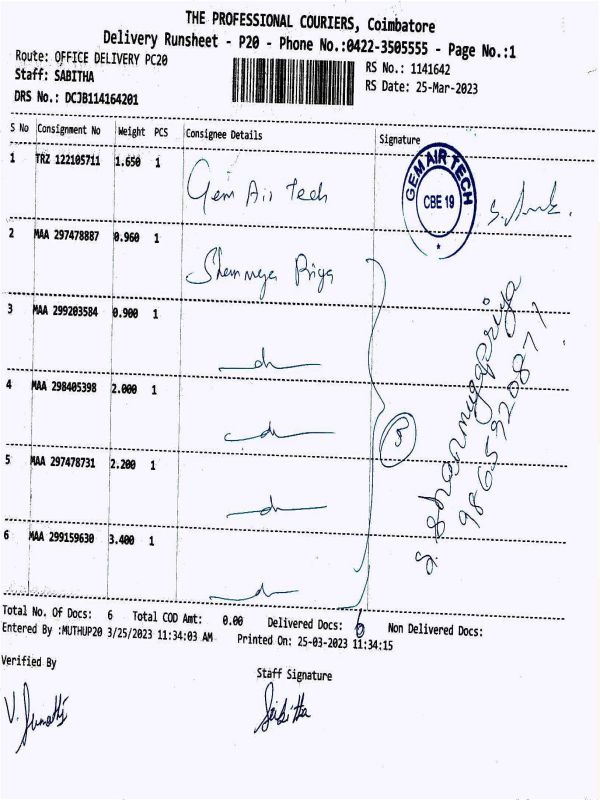 THE PROFESSIONAL COURIERS, Coimbatore
Delivery Runsheet - P20 - Phone No.:0422-3505555 - Page No.:1
Route: OFFICE DELIVERY PC20
Staff: SABITHA
DRS No.: DCJB114164201
RS No.: 1141642
RS Date: 25-Mar-2023
S No Consignment No Weight PCS Consignee Details Signature
1 TRZ 122105711 1.650 1 Gem Air Tech
GEM AIR TECH
CBE 19
2 MAA 297478887 0.960 1 Shanmuga Priya
3 MAA 299203584 0.900 1
4 MAA 298405398 2.000 1
5 MAA 297478731 2.200 1
6 MAA 299159630 3.400 1
S. Shanmugapriya
9865920871
Total No. Of Docs: 6 Total COD Amt: 0.00 Delivered Docs: 6 Non Delivered Docs:
Entered By :MUTHUP20 3/25/2023 11:34:03 AM Printed On: 25-03-2023 11:34:15
Verified By
Staff Signature
V. Sumathi
Sabitha